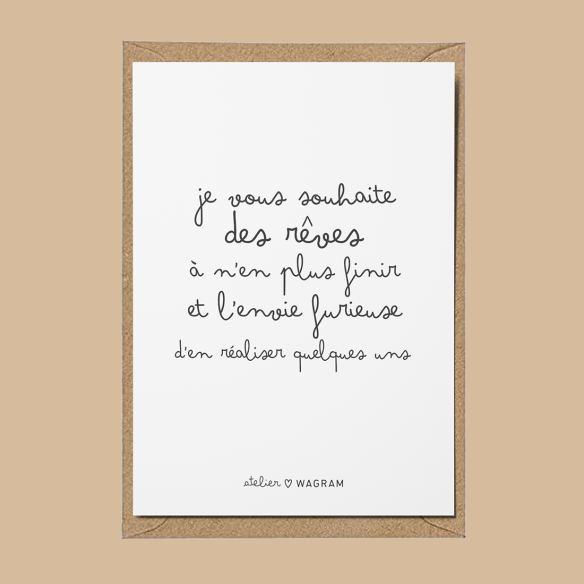 je vous souhaite
des rêves
à n'en plus finir
et l'envie furieuse
d'en réaliser quelques uns
atelier ♡ WAGRAM